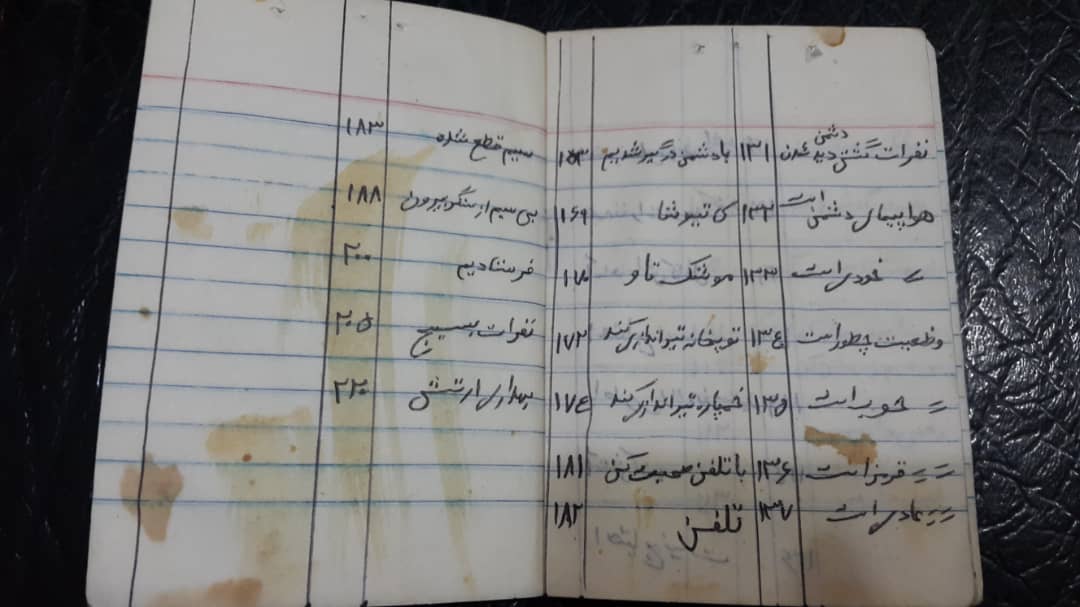 نفرات گشتی دشمن دیده شدن ۱۳۱ با دشمن درگیر شدیم ۱۵۳
هواپیمای دشمن است ۱۳۲ کاتیوشا ۱۶۹
〃 خودی است ۱۳۳ موشک تاو ۱۷۰
وظعیت چطور است ۱۳۴ توپخانه تیراندازی کند ۱۷۲
〃 خوب است ۱۳۵ خمپاره تیراندازی کند ۱۷۴
〃 〃 قرمز است ۱۳۶ با تلفن صحبت کن ۱۸۱
〃 〃 عادی است ۱۳۷ تلفن ۱۸۲
سیم قطع شده ۱۸۳
بی سیم از سنگر بیرون ۱۸۸
فرستادیم ۲۰۰
نفرات بسیج ۲۰۵
بهداری ارتش ۲۲۰